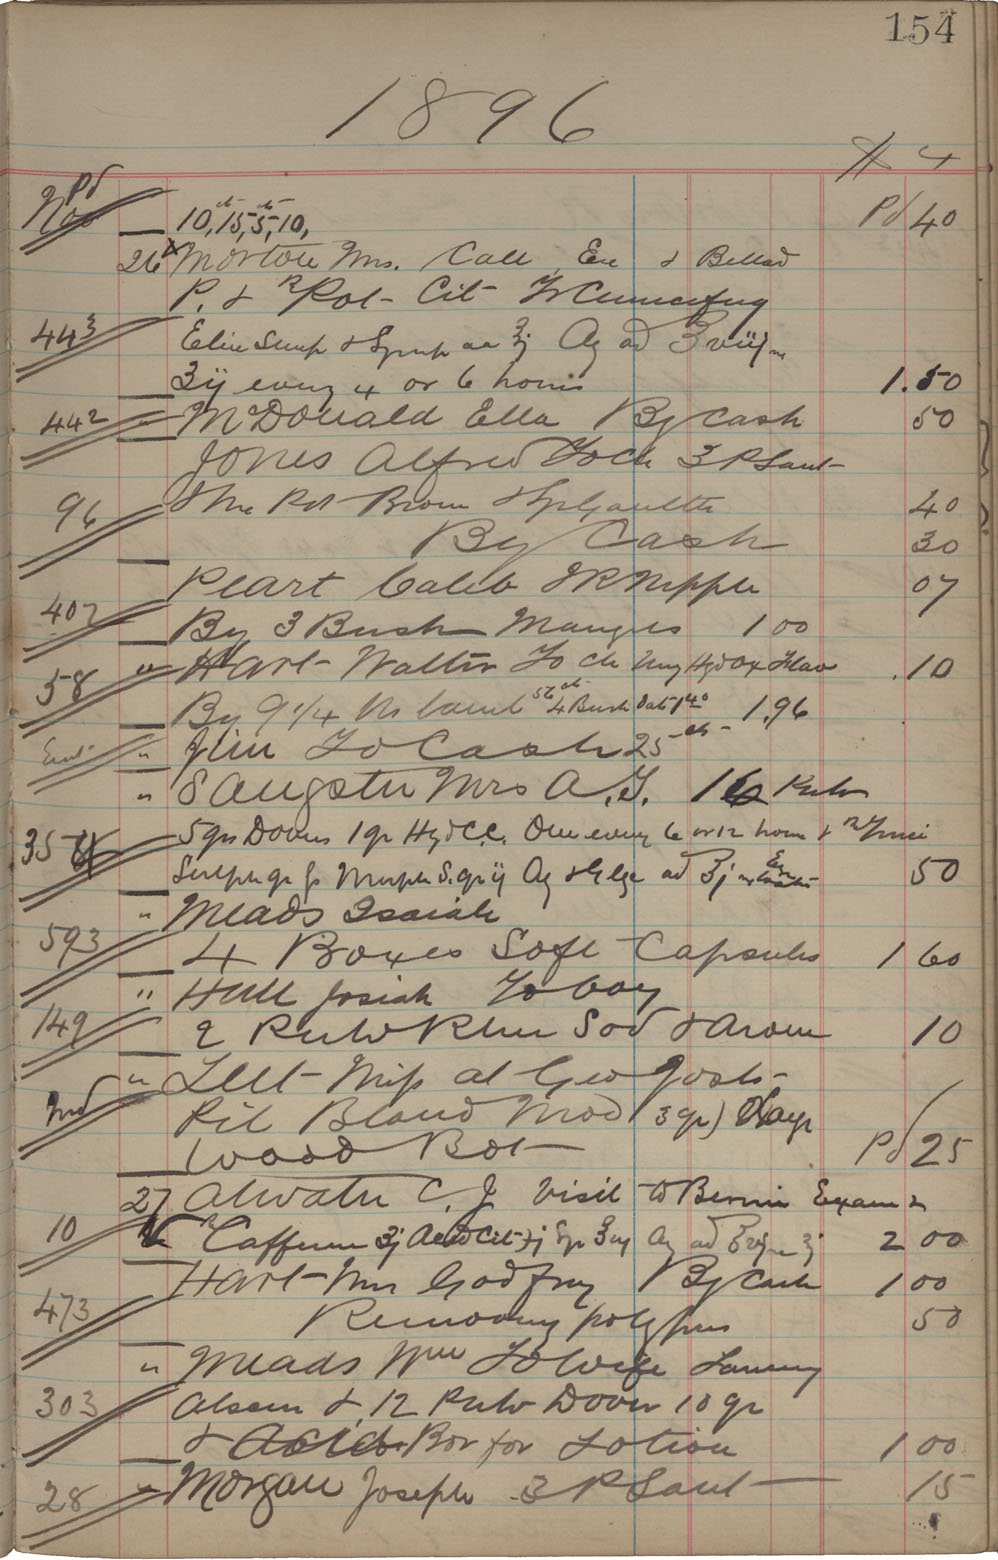 154
1896
Pd
Nov 10, 15, 5, 10, Pd 40
26 Morton Mrs. Call, Exe & Bellad
P. & Rx Pot Cit Tr Cimicifug
443 Elix Simp & Syrup aa ʒj Aq ad ℥viij
ʒij every 4 or 6 hours 1.50
442 McDonald Ella By Cash 50
Jones Alfred To ch 3 P Sant
96 Pot Brom & Gaulth 40
By Cash 30
Peart Caleb I R Nipple 07
407 By 3 Bush Mangles 1 00
58 " Hart Walter To ch Ung Hyd Ox Flav .10
By 9 1/4 lbs lamb 56 cts 4 Bush Oats 1 40 1.96
Ent " Jim To Cash 25 cts
" Sangster Mrs A. T. 16 Pulv
35 5 grs Dovers 1 gr Hyd C.C. One every 6 or 12 hours & Rx
Sulph gr Morph S. gr ij Aq & Glyc ad ℥j 50
593 " Meads Isaiah
4 Boxes Soft Capsules 1 60
" Hall Josiah To boy
149 2 Pulv Rhei Sod & Arom 10
" Lelt Miss at Geo Yosts
Ind Pil Blaud Mod 3 gr)
Wood Bot Pd 25
27 Atwater C. J. Visit to Bernice Exam &
10 Rx Caffeine ʒj Acid Cit ʒj Aq ad ℥ ʒj 2 00
Hart Mrs Godfrey By Cash 1 00
473 Removing polypus 50
" Meads Wm To Wife
303 Alsem & 12 Pulv Dover 10 gr
& Acid Bor for Lotion 1 00
28 " Morgan Joseph 3 P Sant 15